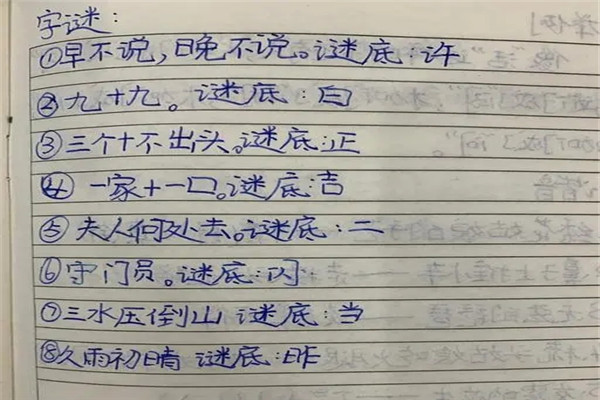 字谜：
①早不说，日晚不说。谜底：许
②九十九。谜底：白
③三个十不出头。谜底：正
④一家十一口。谜底：吉
⑤夫人何处去。谜底：二
⑥守门员。谜底：闪
⑦三水压倒山 谜底：当
⑧久雨初晴 谜底：昨